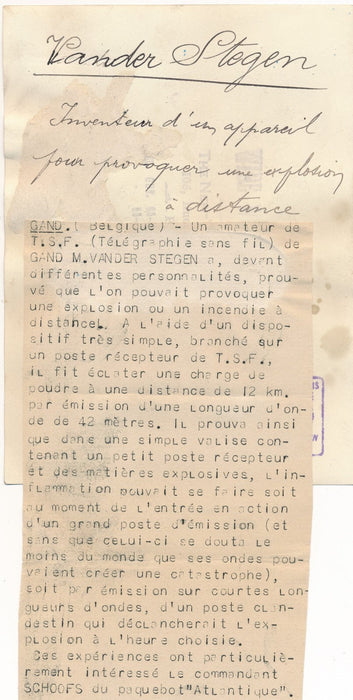 Vander Stegen
Inventeur d'un appareil
pour provoquer une explosion
à distance
GAND.( Belgique) - Un amateur de
T.S.F. (Télégraphie sans fil) de
GAND M.VANDER STEGEN a, devant
différentes personnalités, prou-
vé que l'on pouvait provoquer
une explosion ou un incendie à
distance. A l'aide d'un dispo-
sitif très simple, branché sur
un poste récepteur de T.S.F.,
il fit éclater une charge de
poudre à une distance de 12 km.
par émission d'une longueur d'on-
de de 42 mètres. Il prouva ainsi
que dans une simple valise con-
tenant un petit poste récepteur
et des matières explosives, l'in-
flammation pouvait se faire soit
au moment de l'entrée en action
d'un grand poste d'émission (et
sans que celui-ci se doute le
moins du monde que ses ondes pou-
vaient créer une catastrophe),
soit par émission sur courtes lon-
gueurs d'ondes, d'un poste clan-
destin qui déclancherait l'ex-
plosion à l'heure choisie.
Ces expériences ont particuliè-
rement intéressé le commandant
SCHOOFS du paquebot"Atlantique".